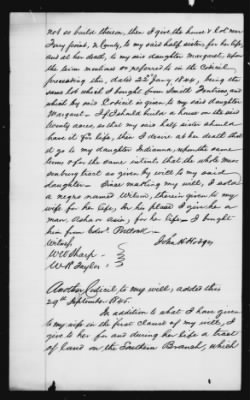 not so build thereon, then I give the house & lot near
Ferry point, in County, to my said half sister, for her life,
and at her death, to my said daughter Margaret, upon
the terms mentioned or referred to in the Codicil,
preceeding this, dated 22d Jany, 1844, being the
same lot which I bought from Smith Fentress, and
which by said Codicil is given to my said daughter
Margaret. If I should build a house on the said
twenty acres, so that my said half sister should
have it for life, then I desire at her death that
it go to my daughter Indianna, upon the same
terms & for the same intent that the whole
tract as given by will to my said
daughter. Since making my will, I sold
a negro named Wilson, therein given to my
wife for her life, in his place I give her a
man, Asha or Asia, for her life, I bought
him from Edwd.
Witness
John H Hodges
W W Sharp
W. R. Taylor
Another Codicil to my will, added this
29th September 1845.
In addition to what I have given
to my wife in the first clause of my will, I
give to her for and during her life a tract
of land on the Southern Branch, which